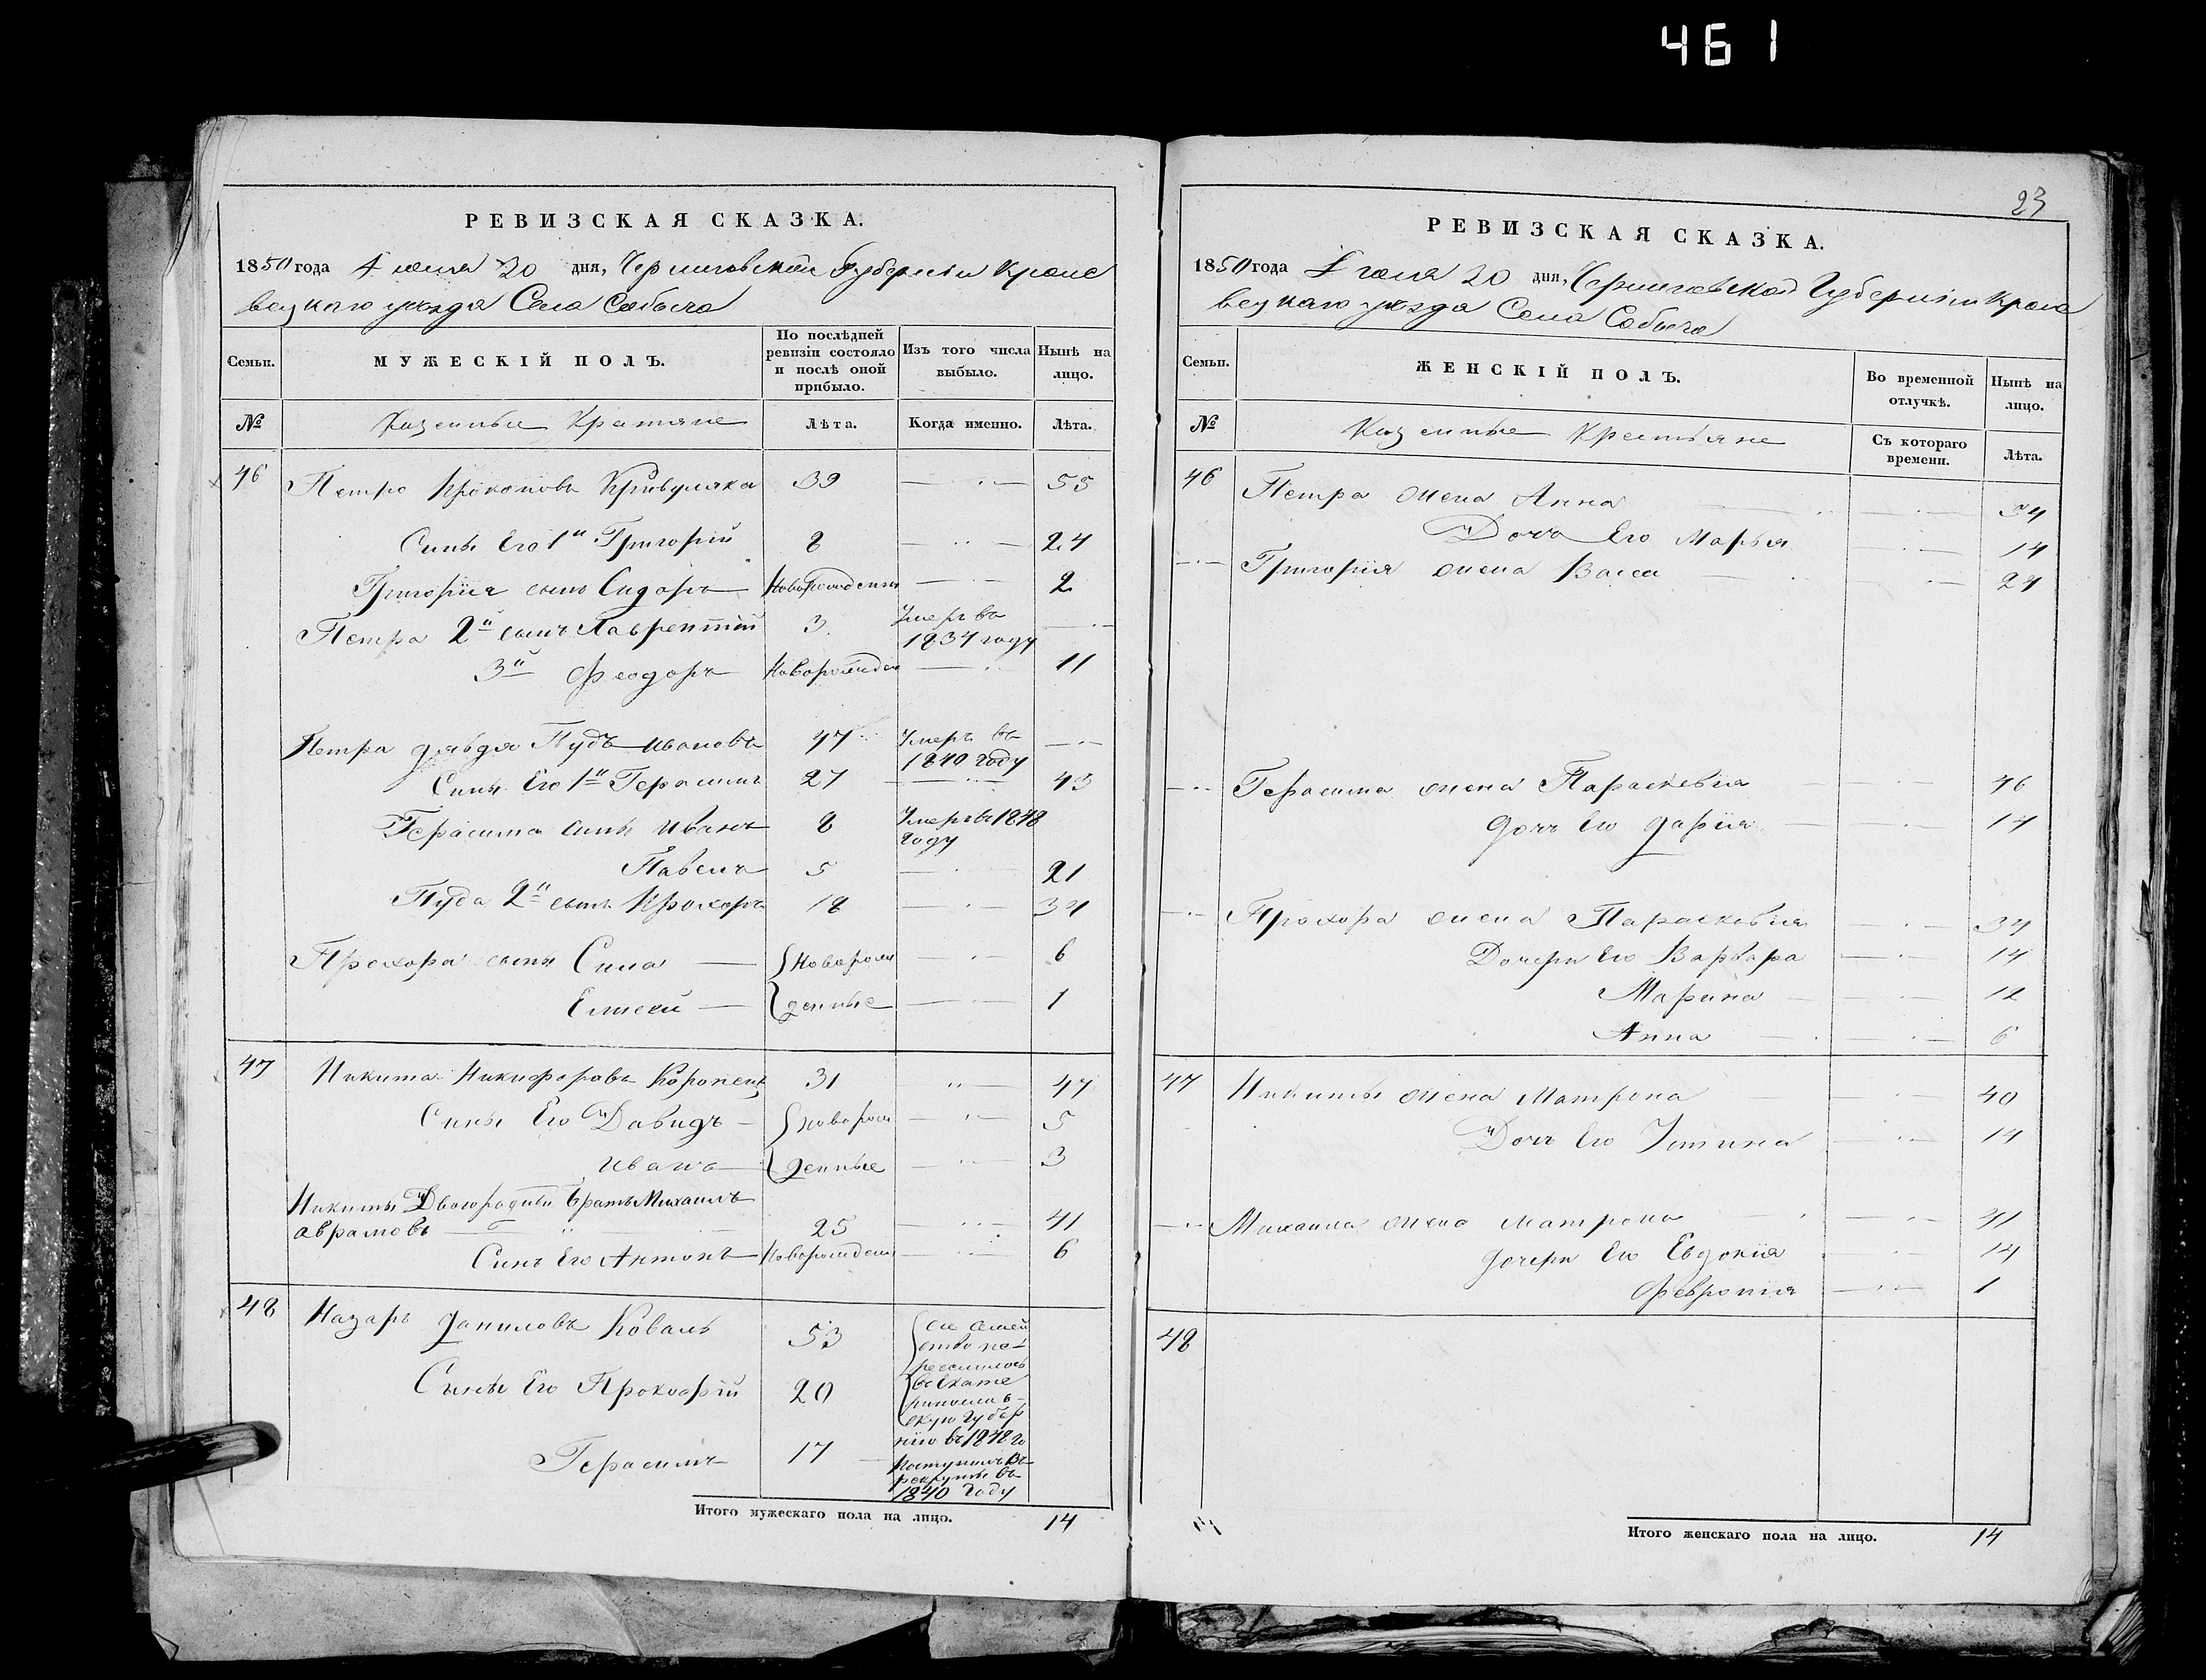 461
РЕВИЗСКАЯ СКАЗКА.
1850 года Іюля 20 дня, Черниговской Губерніи Кроле
вецкаго уезда Села Собыча
Семьи. МУЖЕСКІЙ ПОЛЪ. По послѣдней ревизіи состояло и послѣ оной прибыло. Изъ того числа выбыло. Нынѣ на лицо.
№ Казенные Крестяне Лѣта. Когда именно. Лѣта.
46 Петро Прокоповъ Кривуляка 39 55
Сины Его 1й Григорій 8 24
Григорія сынъ Сидоръ Новорожденны 2
Петра 2й сынъ Лаврентій 3 Умеръ въ 1834 году
3й Феодоръ Новорожден 11
Петра дядя Пудъ Ивановъ 47 Умеръ въ 1840 году
Сины Его 1й Герасимъ 27 43
Герасима сины Иванъ 8 Умеръ въ 1848 году
Павелъ 5 21
Пуда 2й сынъ Прохоръ 18 34
Прохора сыны Сила Новорож 6
Елисей денные 1
47 Никита Никифоровъ Коропецъ 31 47
Сины Его Давидъ Новорож 5
Иванъ денные 3
Никиты Двоюродный Братъ Михаилъ
аврамовъ 25 41
Синъ Его Антонъ Новорожден 6
48 Назаръ Даниловъ Коваль 53 сіе семей
ство пе-
реселилось
Сины Его Прокофій 20 въ Екате
ринослав-
скую Губер
нію въ 1848 го
Герасимъ 17 Поступилъ въ
рекруты въ
1840 году
Итого мужескаго пола на лицо. 14
23
РЕВИЗСКАЯ СКАЗКА.
1850 года Іюля 20 дня, Черниговской Губерніи Кроле
вецкаго уезда Села Собыча
Семьи. ЖЕНСКІЙ ПОЛЪ. Во временной отлучкѣ. Нынѣ на лицо.
№ Казенные Крестьяне Съ котораго времени. Лѣта.
46 Петра жена Анна 54
Дочь Его Марья 14
Григорія жена Васса 24
Герасима жена Параскевія 46
дочь Его Дарія 14
Прохора жена Параскевія 34
Дочери Его Варвара 14
Марина 12
Анна 6
47 Никиты жена Матрона 40
Дочь Его Устина 14
Михаила жена Матрона 41
дочери Его Евдокія 14
Февронія 1
48
Итого женскаго пола на лицо. 14